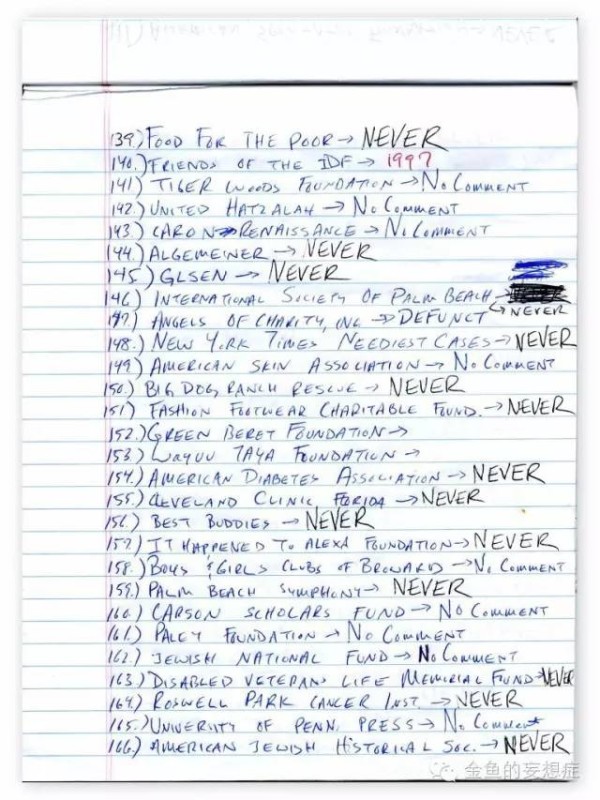 139.) FOOD FOR THE POOR → NEVER
140.) FRIENDS OF THE IDF → 1997
141) TIGER WOODS FOUNDATION → No COMMENT
142.) UNITED HATZALAH → No COMMENT
143.) CARON → RENAISSANCE → No COMMENT
144.) ALGEMEINER → NEVER
145.) GLSEN → NEVER
146) INTERNATIONAL SOCIETY OF PALM BEACH → NEVER
147.) ANGELS OF CHARITY, INC → DEFUNCT
148.) NEW YORK TIMES NEEDIEST CASES → NEVER
149.) AMERICAN SKIN ASSOCIATION → No COMMENT
150.) BIG DOG RANCH RESCUE → NEVER
151) FASHION FOOTWEAR CHARITABLE FOUND. → NEVER
152.) GREEN BERET FOUNDATION →
153.) WAYUU TAYA FOUNDATION →
154.) AMERICAN DIABETES ASSOCIATION → NEVER
155.) CLEVELAND CLINIC FLORIDA → NEVER
156.) BEST BUDDIES → NEVER
157.) IT HAPPENED TO ALEXA FOUNDATION → NEVER
158.) BOYS & GIRLS CLUBS OF BROWARD → No COMMENT
159.) PALM BEACH SYMPHONY → NEVER
160.) CARSON SCHOLARS FUND → No COMMENT
161.) PALEY FOUNDATION → No COMMENT
162.) JEWISH NATIONAL FUND → No COMMENT
163.) DISABLED VETERANS LIFE MEMORIAL FUND → NEVER
164.) ROSWELL PARK CANCER INST. → NEVER
165.) UNIVERITY OF PENN. PRESS → No Comment
166.) AMERICAN JEWISH HISTORICAL SOC. → NEVER
金鱼的妄想症